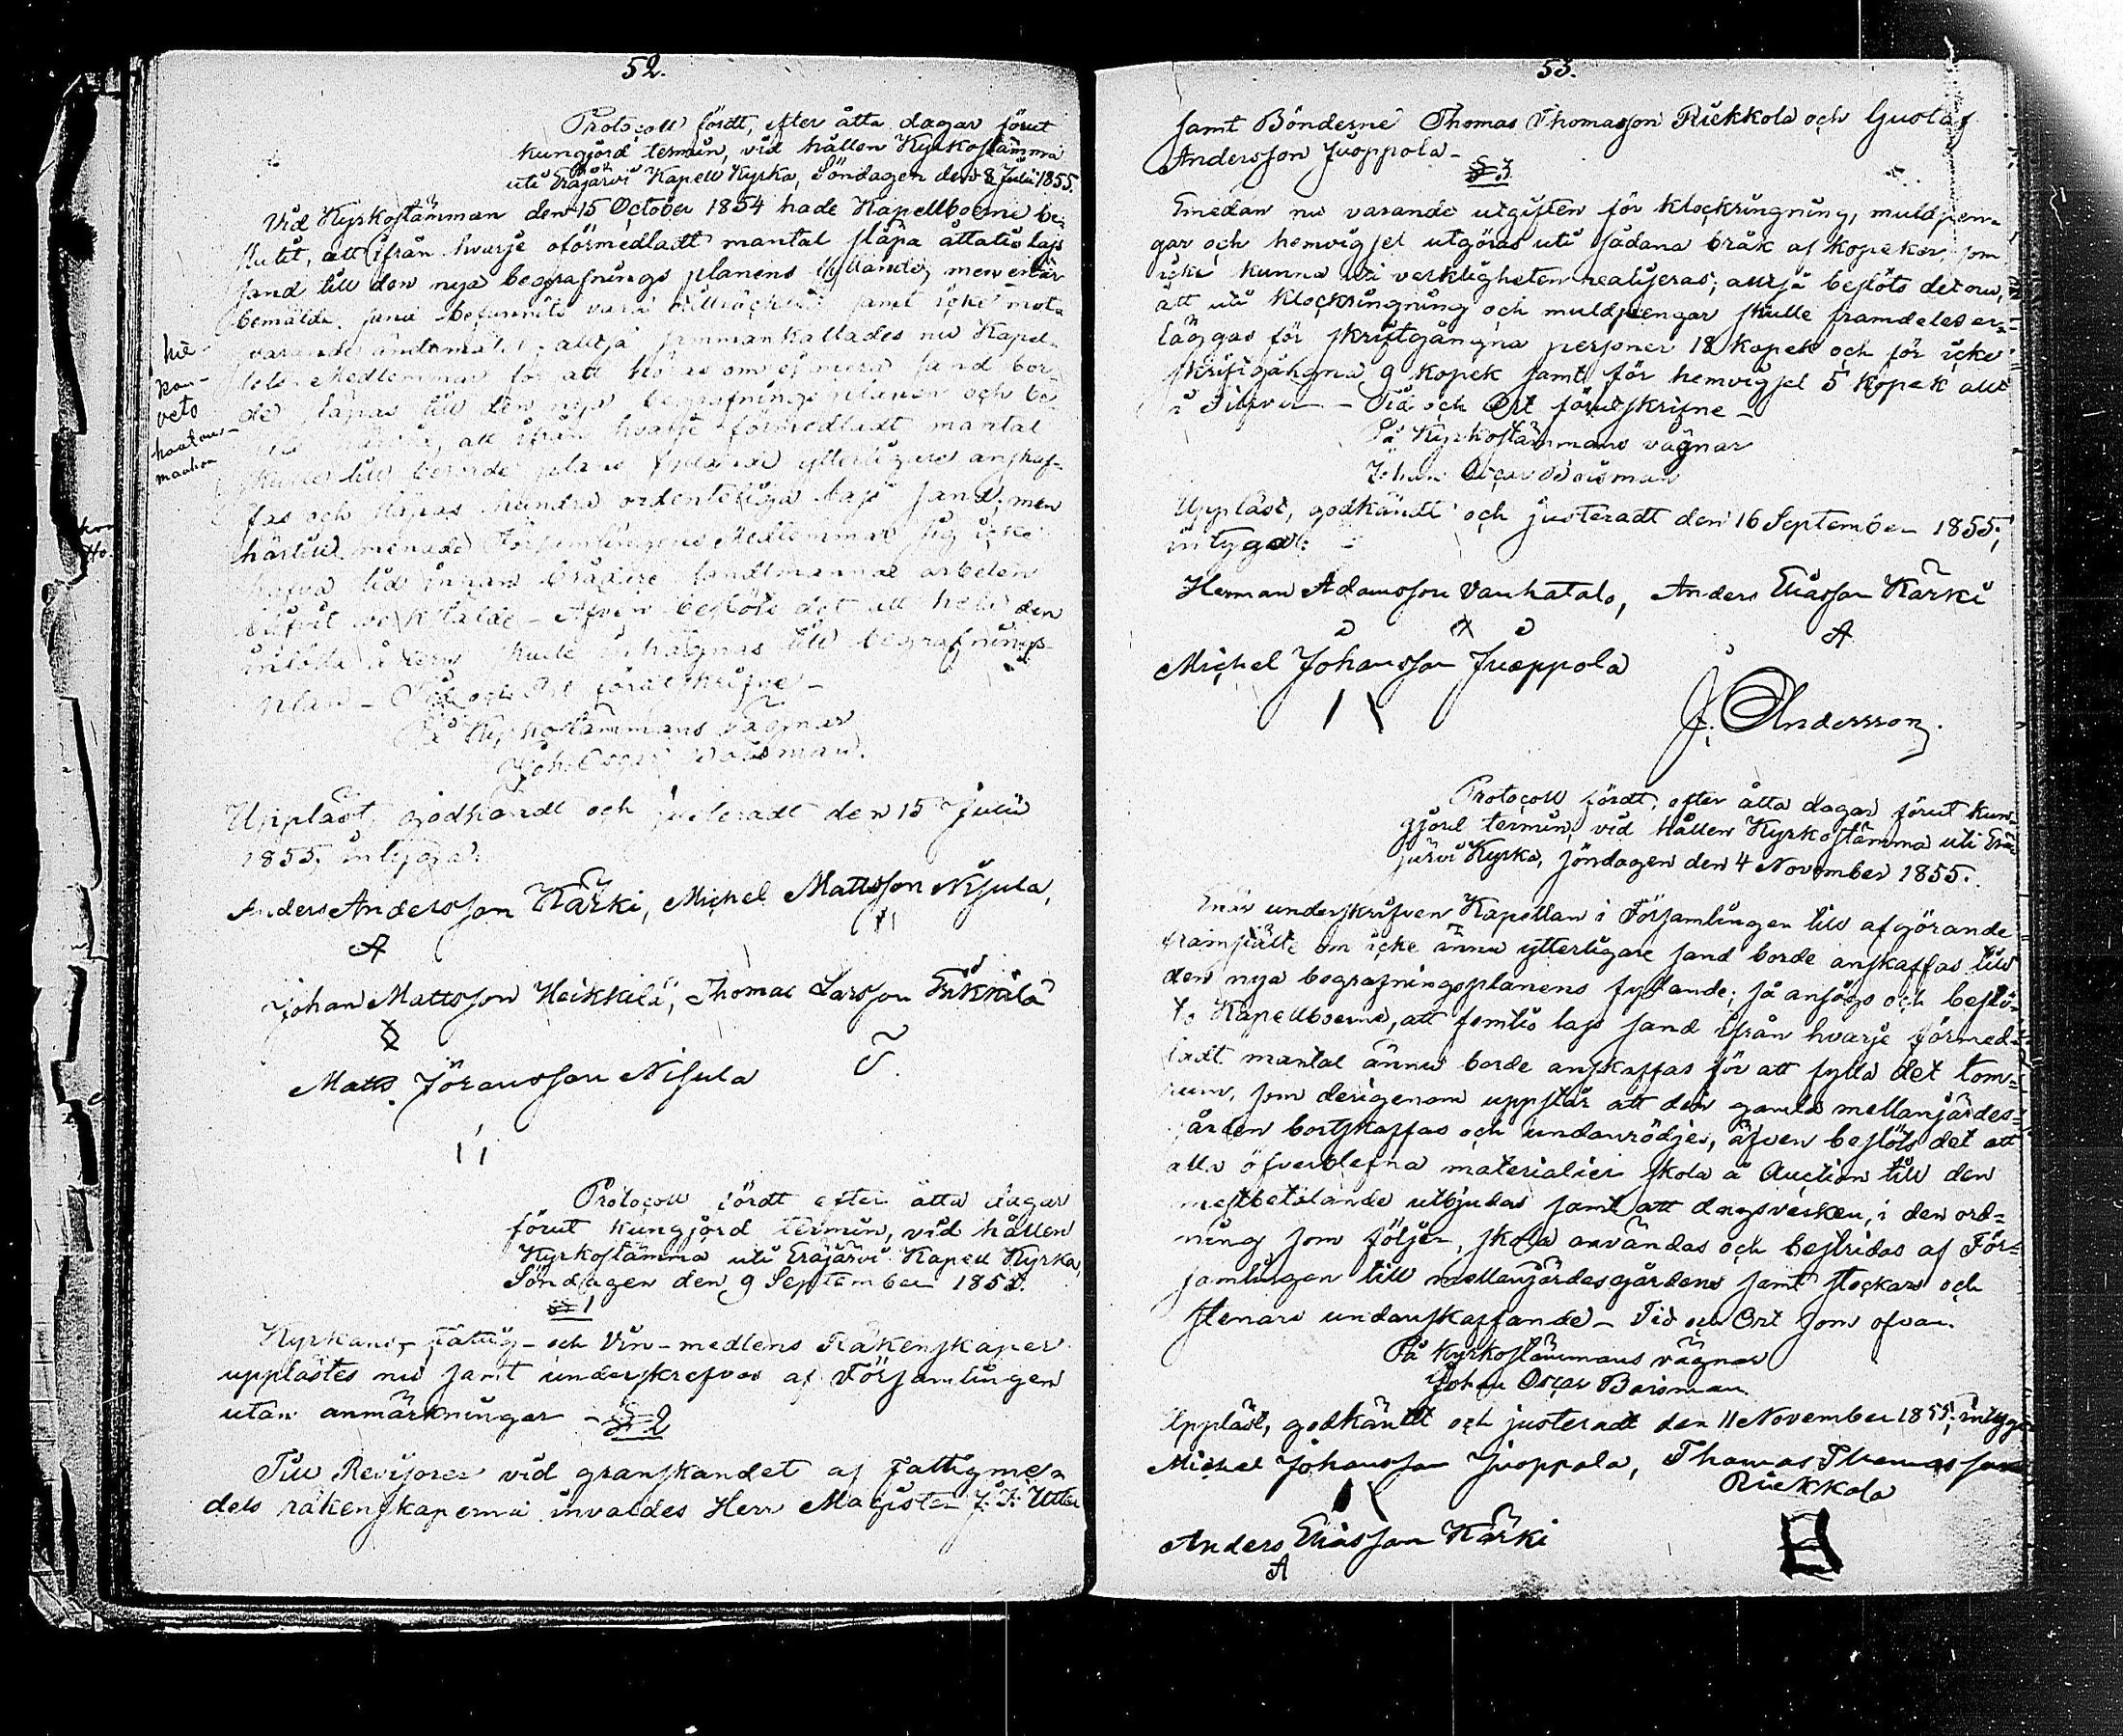 52.
Protocoll fördt, efter åtta dagar förut
kungjord termin, vid hållen Kyrkostämma
uti Eräjärvi Kapell Kyrka, Söndagen den 8 Julii 1855.
Vid Kyrkostämman den 15 October 1854 hade Kapellboerne be-
slutit, att ifrån hvarje oförmedladt mantal släpa åttatio lass
sand till den nya begrafnings planens fyllande, men enär
bemälde sand befunnits vara otillräcklig samt icke mot-
varande ändamålet, alltså sammankallades nu Kapel-
lets Medlemmar för att höras om ej mera sand bor-
de släpas till den nya begrafnings planen och be-
att ifrån hvarje förmedladt mantal
skulle till berörde plans fyllande ytterligare anskaf-
fas och släpas hundra ordenteliga lass sand; men
härtill menade Församlingens Medlemmar sig icke
hafva tid innan brådare landtmanna arbeten
blifvit verkstälde - Äfven beslöts det att hela den
inlösta åkern skulle inhägnas till begrafnings-
plan - Tid och Ort förutskrifne -
På Kyrkostämmans vägnar
Joh: Oscar Boisman.
hie-
kan-
veto
hautaus-
maahan
Uppläst, godkändt och justeradt den 15 Julii
1855, intyga:
Anders Andersson Kärki, Michel Mattsson Nisula,
A
Johan Mattsson Heikkilä, Thomas Larsson Erkkilä
Matts Jöransson Nisula
Protocoll fördt efter åtta dagar
förut kungjord termin, vid hållen
Kyrkostämma uti Eräjärvi Kapell Kyrka,
Söndagen den 9 September 1855.
§ 1
Kyrkans, Fattig- och Vin-medlens Räkenskaper
upplästes nu samt underskrefvos af Församlingen
utan anmärkningar -
§ 2
Till Revisorer vid granskandet af Fattigme-
dels räkenskaperna invaldes Herr Magister J: F: Utter
53.
samt Bönderne Thomas Thomasson Riekkola och Gustaf
Andersson Juoppola -
§ 3
Emedan nu varande utgiften för klockringning, muldpen-
gar och hemvigsel utgöras uti sådana bråk af kopeker, som
icke kunna uti verkligheten realiseras; alltså beslöts det nu,
att uti klockringning och muldpengar skulle framdeles er-
läggas för skriftgångna personer 18 kopek och för icke
skriftgångna 9 kopek samt för hemvigsel 5 kopek allt
i Silfver - Tid och Ort förutskrifne -
På Kyrkostämmans vägnar
Johan Oscar Boisman
Uppläst, godkändt och justeradt den 16 September 1855;
intygar:
Herman Adamsson Vanhatalo, Anders Eliasson Kärki
A
Michel Johansson Juoppola
J. Andersson.
Protocoll fördt, efter åtta dagar förut kun-
gjord termin, vid hållen Kyrkostämma uti Erä-
järvi Kyrka, söndagen den 4 November 1855.
Enär underskrifven Kapellan i Församlingen till afgörande
framställte om icke ännu ytterligare sand borde anskaffas till
den nya begrafningsplanens fyllande; så ansågo och beslö-
to Kapellboerne, att femtio lass sand ifrån hvarje förmed-
ladt mantal ännu borde anskaffas för att fylla det tom-
rum, som derigenom uppstår att den gamla mellangärdes-
gården bortskaffas och undanrödjes, äfven beslöts det att
alla öfverblefna materialier skola å Auction till den
mestbetalande utbjudas samt att dagsverken, i den ord-
ning som följer, skola användas och bestridas af För-
samlingen till mellangärdesgårdens samt stockars och
stenars undanskaffande - Tid och Ort som ofvan.
På Kyrkostämmans vägnar
Johan Oscar Boisman
Uppläst, godkändt och justeradt den 11 November 1855; intyga
Michel Johansson Juoppola, Thomas Thomasson
Riekkola
Anders Eliasson Kärki
A